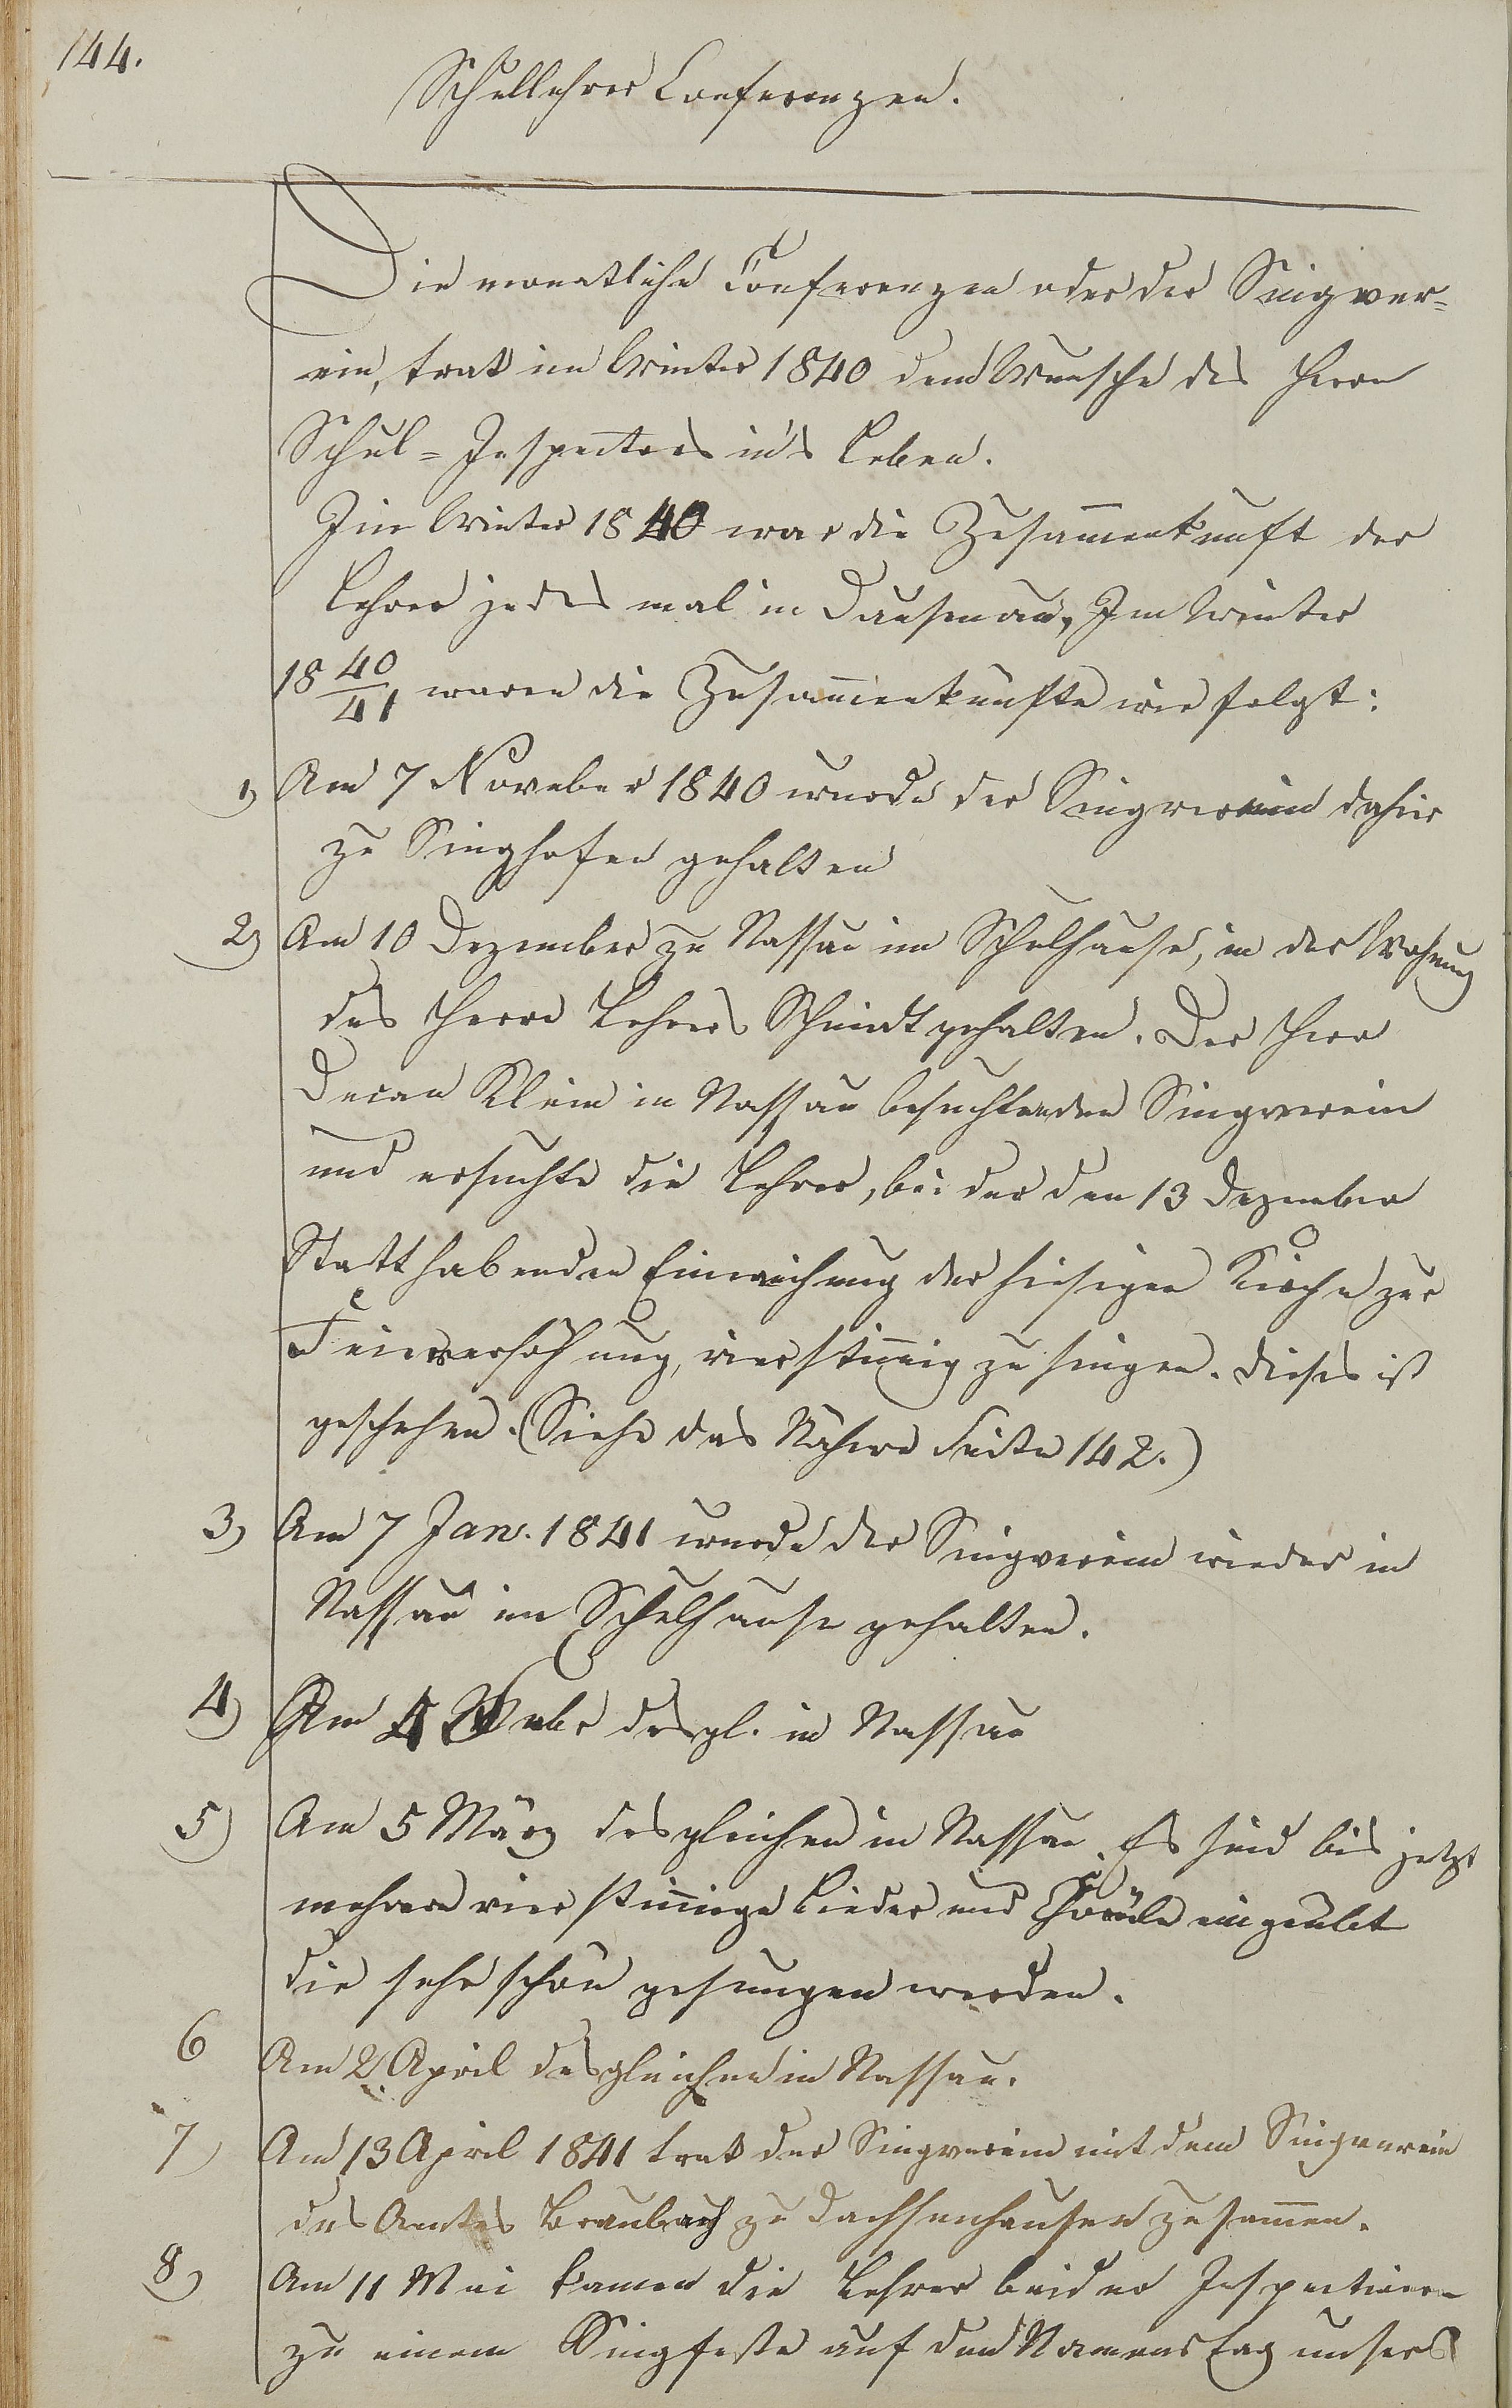 144.
Schullehrer Conferenzen.
Die monatliche Conferenzen oder der Singver=
ein, trat im Winter 1840 dem Wunsche des Herrn
Schul=Inspectors in's Leben.
Im Winter 1840 war die Zusam̄enkunft der
Lehrer jedes mal in Dausenau, Im Winter
18 40/41 waren die Zusam̄enkünfte wie folgt:
1) Am 7 November 1840 wurde der Singverein dahier
zu Singhofen gehalten
2) Am 10 Dezember zu Nassau im Schulhause, in der Wohnung
des Herrn Lehrers Schmidt gehalten. Der Herr
Decan Klein in Nassau besuchte den Singverein
und ersuchte die Lehrer, bei der den 13 Dezember
Statt habenden Einweihung der hiesigen Kirche zur
Feierserhöhung, vierstim̄ig zu singen. Dieses ist
geschehen. (Siehe das Nähere Seite 142.)
3) Am 7 Jan. 1841 wurde der Singverein wieder in
Nassau im Schulhause gehalten.
4) Am 4 Febr desgl. in Nassau
5) Am 5 März desgleichen in Nassau. Es sind bis jetzt
mehrere vierstim̄ige Lieder und Choräle eingeübt
die sehr schön gesungen werden.
6 Am 2 April desgleichen in Nassau.
7) Am 13 April 1841 trat der Singverein mit dem Singverein
des Amtes Braubach zu Dachsenhausen zusam̄en.
8) Am 11 Mai kamen die Lehrer beider Inspectionen
zu einem Singfeste auf den Namenstag unsers